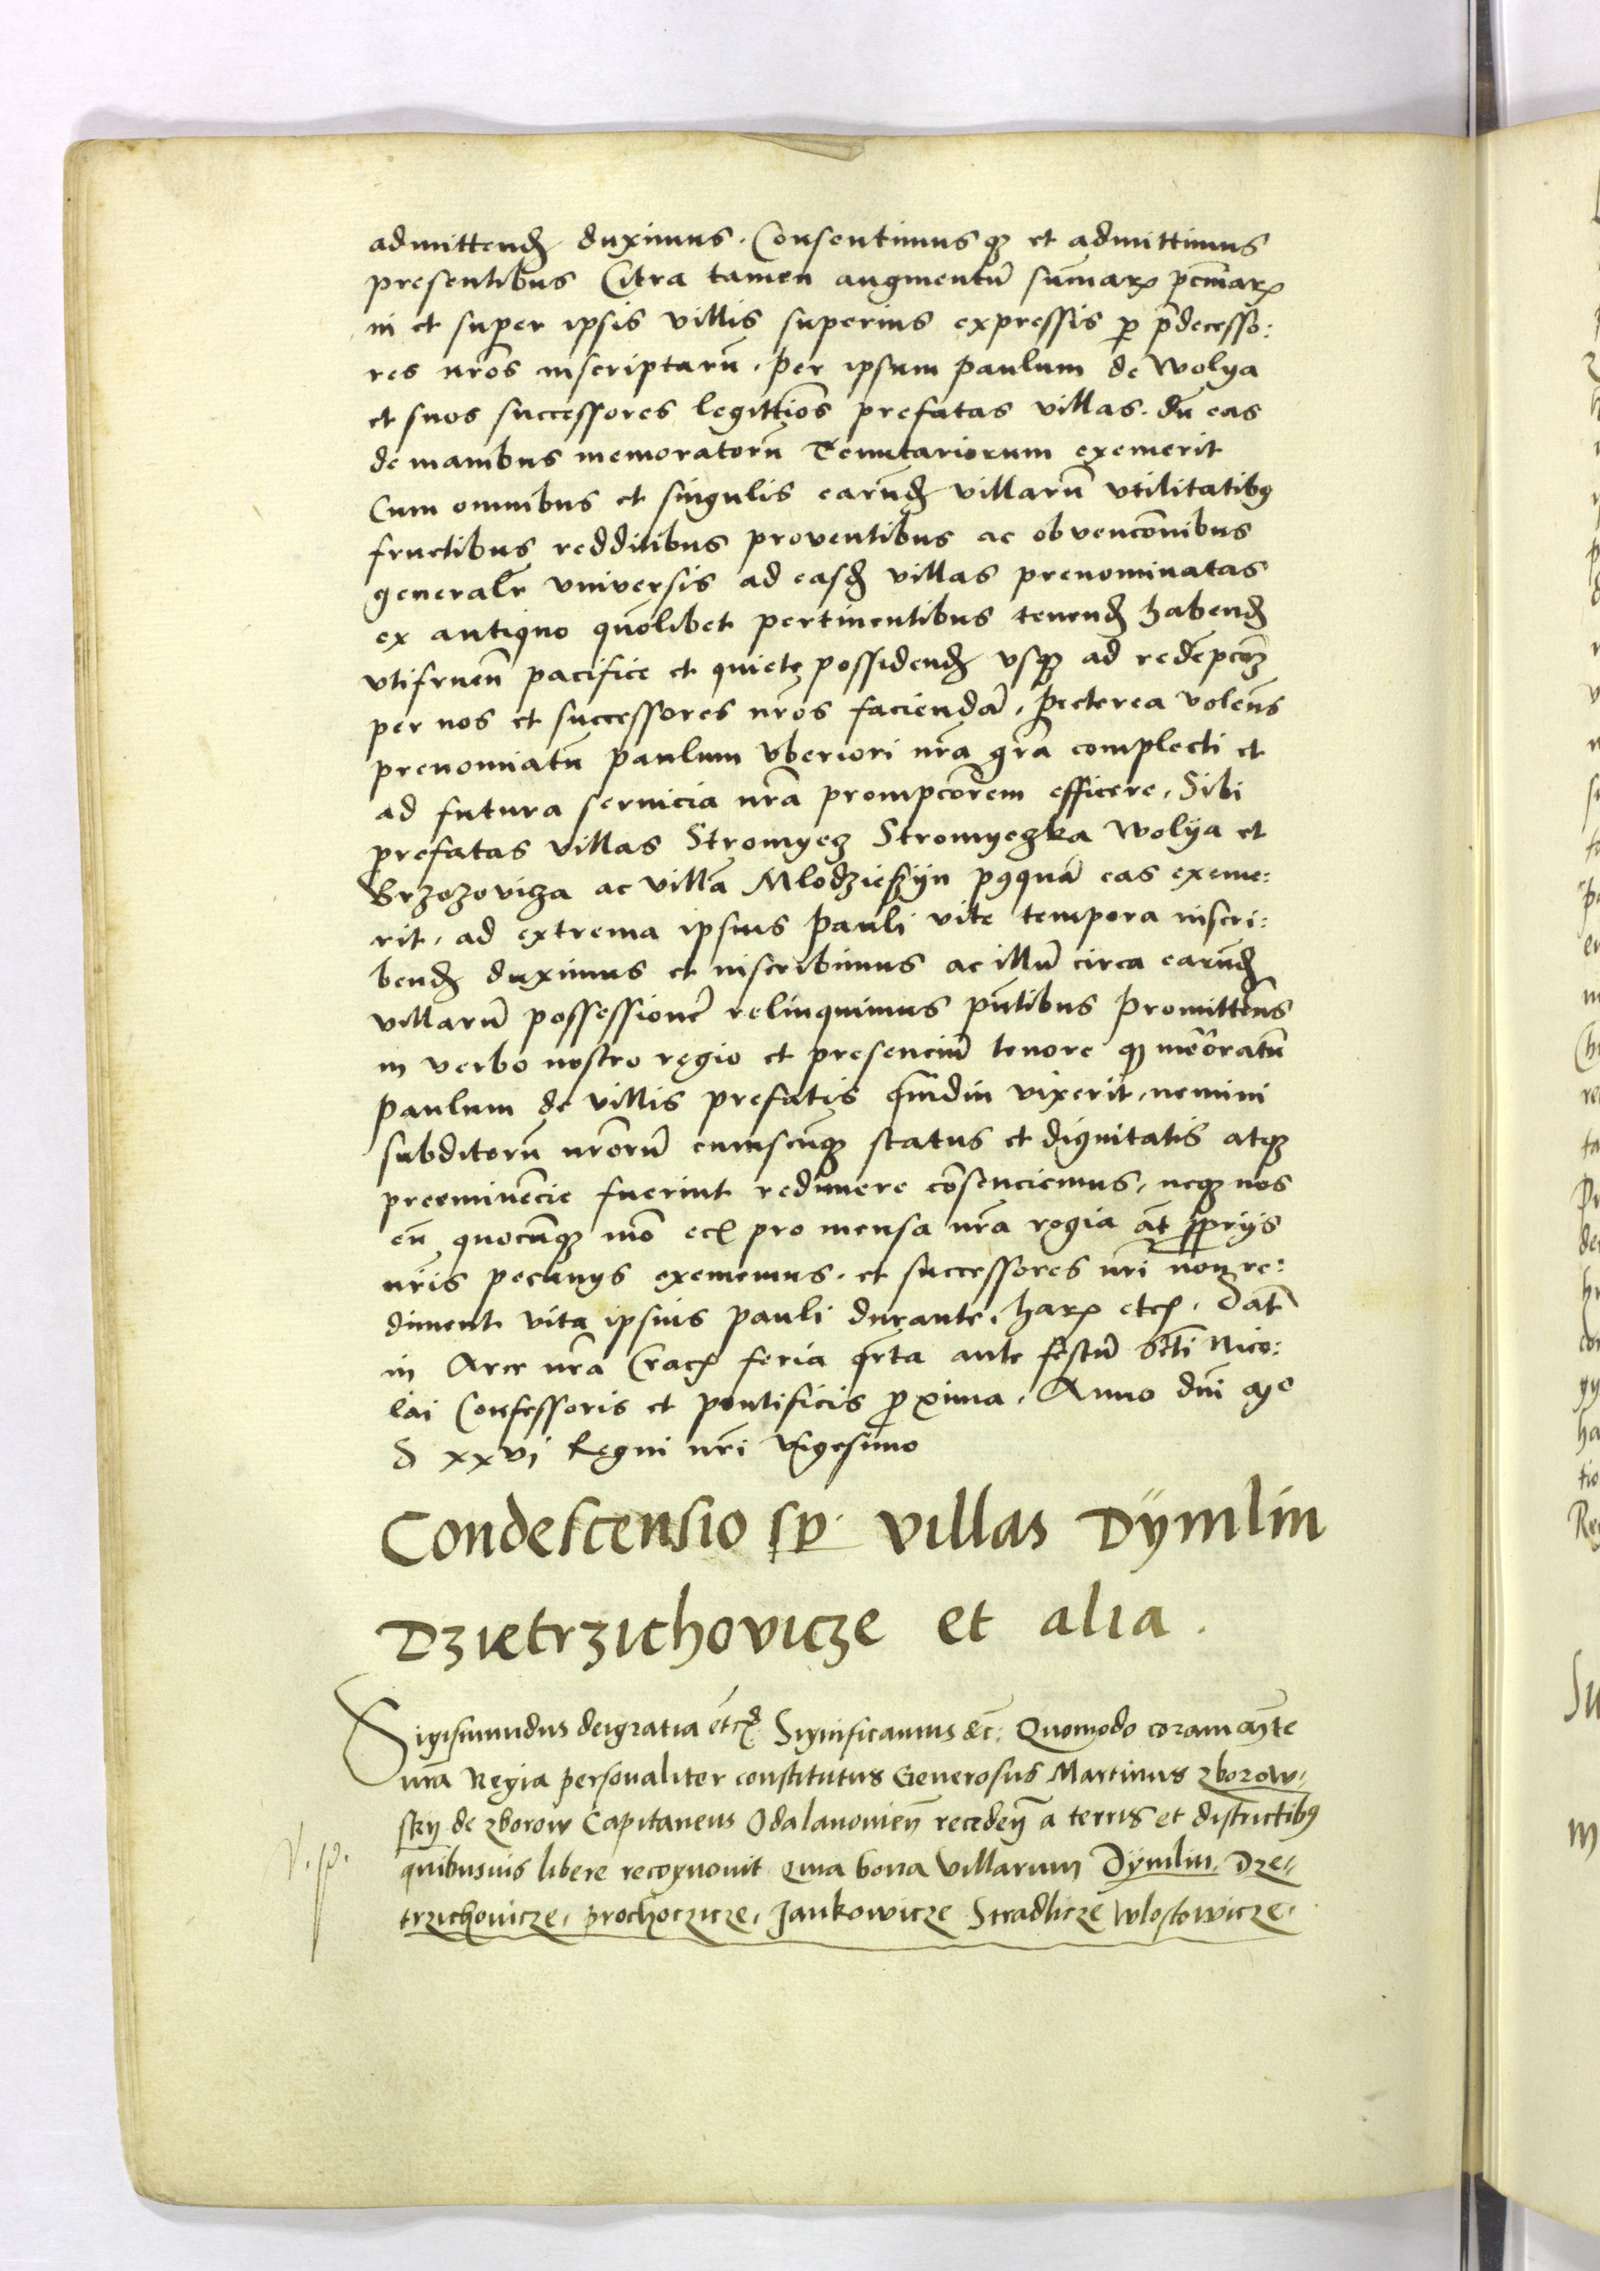 admittend duximus. Consentimusq et admittimus
presentibus Citra tamen augmentū sūmarꝝ pēcniarꝝ
in et super ipsis villis superius expressis p p̄decesso:
res nr̄os inscriptarū. per ipsum paulum de wolya
et suos successores legittīos prefatas villas. dū eas
de manibus memoratorū Tenutariorum exemerit
Cum omnibus et singulis earūd villarū vtilitatibꝯ
fructibus redditibus proventibus ac obvencōnibus
generalr vniversis ad easd villas prenominatas
ex antiquo quōlibet pertinentibus tenend habend
vtifruen̄ pacifice et quiete possidend vsqꝫ ad redempcōꝫ
per nos et successores nr̄os faciendā. Preterea volen̄s
prenoīatū paulum vberiori nr̄a gr̄a complecti et
ad futura servicia nr̄a prompcōrem efficere. Sibi
prefatas villas Stromyecz Stromyeczka wolya et
Brzozovicza ac villā Mlodzieszyn pꝯquā eas exeme:
rit. ad extrema ipsius pauli vite tempora inscri:
bend duximus et inscribimus ac illū circa earūd
villarū possessionē relinquimus pn̄tibus promitten̄s
in verbo nostro regio et presenciū tenore qꝫ memōratū
paulum de villis prefatis q̄mdiu vixerit. nemini
subditorū nr̄orū cuiuscūqꝫ status et dignitatis atqꝫ
preeminēcie fuerint redimere cōsenciemus. neqꝫ nos
eū quocūqꝫ mō eciā pro mensa nr̄a regia aūt ꝓprijs
nr̄is pecunijs exememus. et successores nr̄i non re:
diment vita ipsius pauli durante. harꝝ etc. Dat̄
in Arce nr̄a Crac feria qr̄ta ante festū sc̄ti Nico:
lai Confessoris et pontificis proxima. Anno dn̄i Mo
D xxvi Regni nr̄i vigesimo
Condescensio sp. villas Dÿmlin
Dzietrzichovicze et alia.
Sigismundus dei gratia etc. Significamus &c: Quomodo coram M̄te
nr̄a Regia personaliter constitutus Generosus Martinus zborow-
sky de zborow Capitaneus Odalanovien̄ receden̄ a terris et districtibꝯ
quibusuis libere recognovit Quia bona villarum Dÿmlin. Dze-
trzichovicze. prochoczicze. Jankowicze Stradlicze wlostowicze.